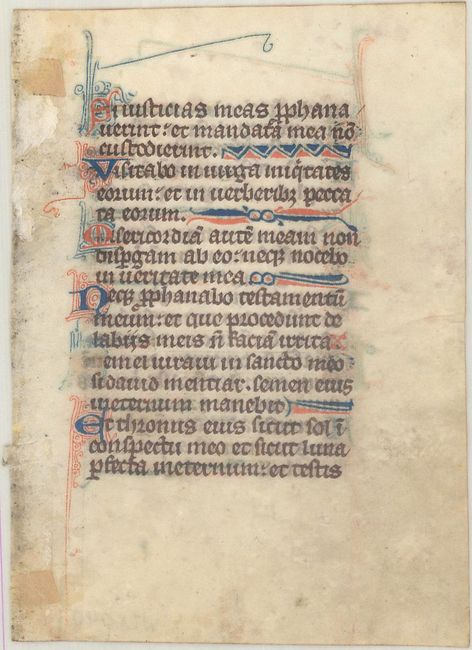 Si iusticias meas ꝓphana
uerint: et mandata mea nō
custodierint.
Visitabo in uirga iniq̇tates
eorum: et in uerberibꝫ pecca
ta eorum.
Misericordiā autē meam non
dispgam ab eo: neqꝫ nocebo
in ueritate mea.
Neqꝫ ꝓphanabo testamentū
meum: et que procedunt de
labijs meis n̄ faciam irrita.
emel iuraui in sancto meo
si dauid mentiar. semen eius
ineternum manebit
Et thronus eius sicut sol ī
conspectu meo et sicut luna
ꝑfecta ineternum: et testis